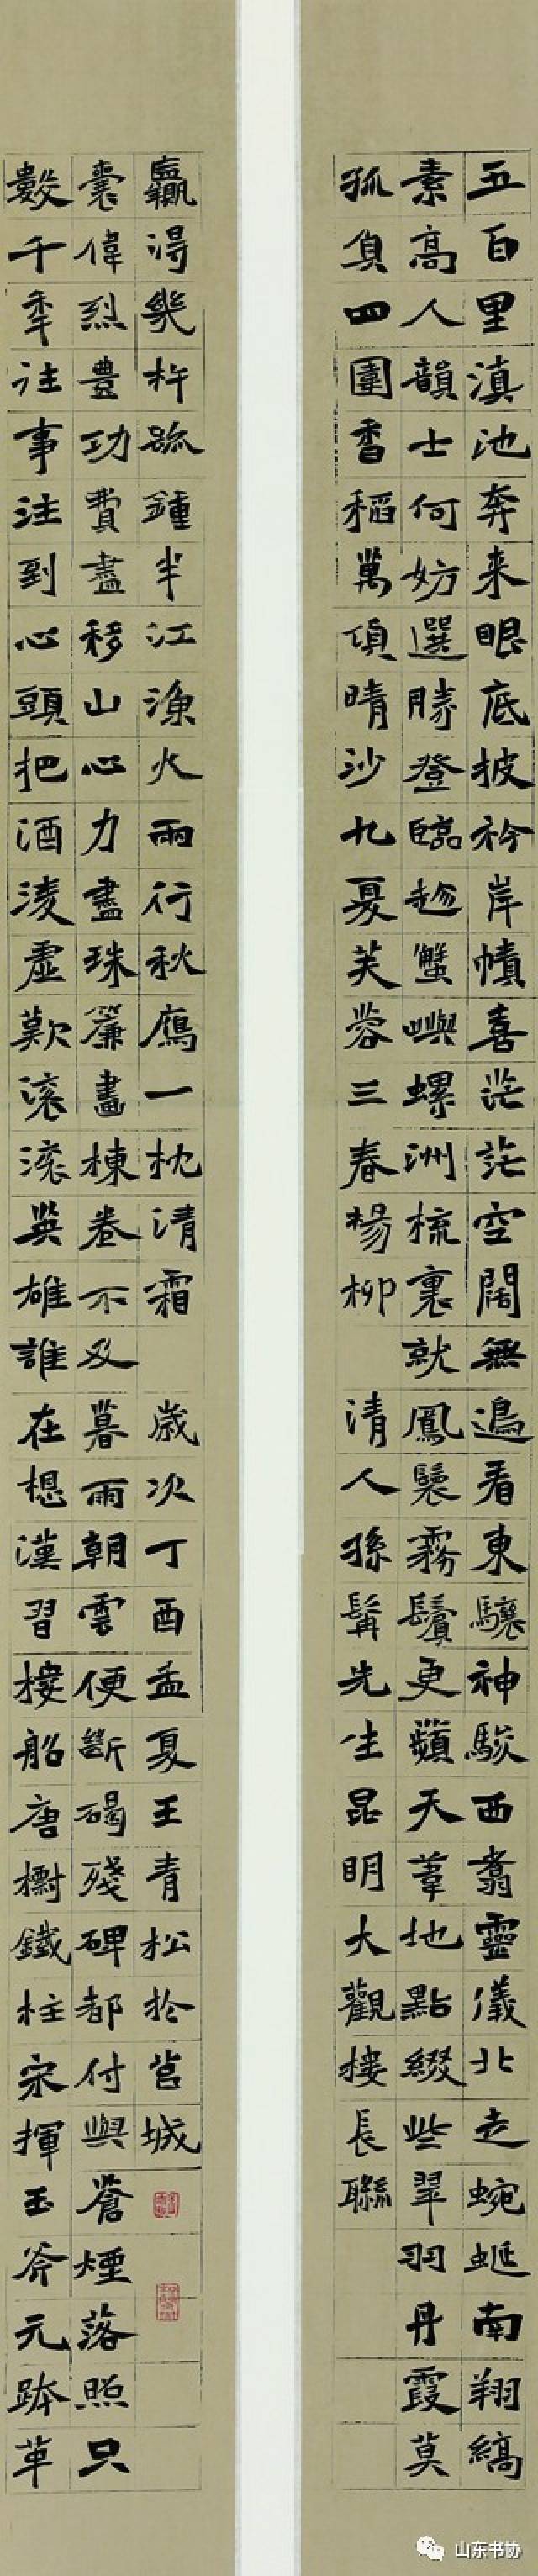 五百里滇池奔来眼底披衿岸幘喜茫茫空闊無邊看東驤神駿西翥靈儀北走蜿蜒南翔縞
素高人韻士何妨選勝登臨趁蟹嶼螺洲梳裹就鳳鬟霧鬢更蘋天葦地點綴些翠羽丹霞莫
孤負四圍香稻萬頃晴沙九夏芙蓉三春楊柳 清人孫髯先生昆明大觀樓長聯
數千年往事注到心頭把酒淩虛歎滾滾英雄誰在想漢習樓船唐標鐵柱宋揮玉斧元跨革
囊偉烈豐功費盡移山心力盡珠簾畫棟卷不及暮雨朝雲便斷碣殘碑都付與蒼煙落照只
贏得幾杵疏鍾半江漁火兩行秋鴈一枕清霜 歲次丁酉孟夏王青松於莒城
山东书协